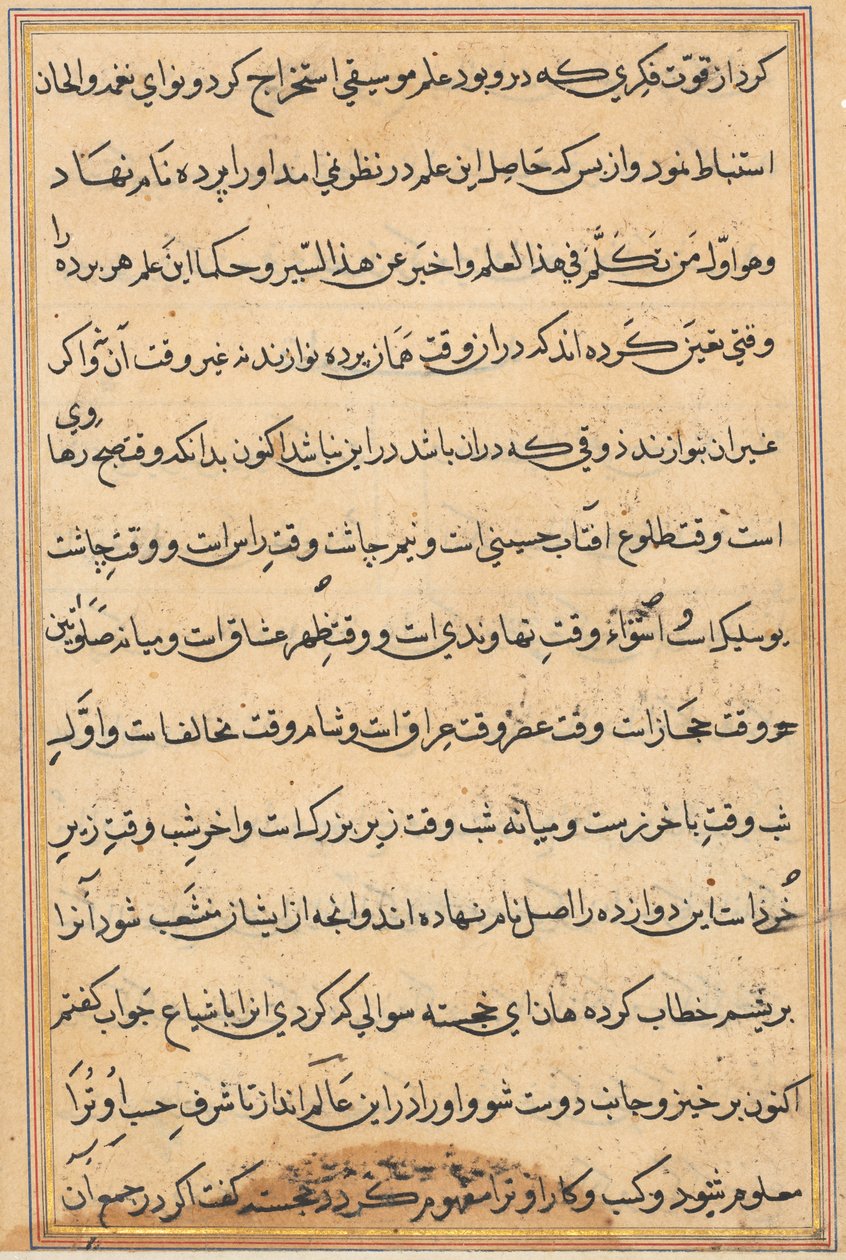 کرد از قوّت فکري که در و بود علم موسیقي استخراج کرد و نواي نغمه و الحان
استنباط نمود و از بس که حَاصِل اینِ علم در نظر نمي امد او را پرده نَام نهَاد
و هو اوّل مَن تَکَلَّمَ في هذا العلم و اخبَر عن هذا السّیر و حکما این علم هر برده را
وقتي تعین کَرده اند که در ان وقت هَمَان پرده نوازند نه غیر وقت آن و اکر
غیر ان بنوازند ذوقي که در ان باشد در این نباشد اکنون بدانکه وقت صبح رهاوي
است وقت طلوع افتاب حسیني است و نیم چاشت وقتِ راس است و وقتِ چاشت
بوسلیک است و استواءْ وقتِ نهاوندي است و وقتِ ظُهر عشاق است و میانه صَلَوتین
وقت حجَاز است وقت عصر وقت عِراق است و شام وقت مخالف است و اوَّلِ
شب وقتِ باخرزست و میانه شب وقت زیر بزرک است و اخرِ شب وقتِ زیرِ
خُرد است این دوازده را اصل نام نهاده اند و انجه از ایشان منشَعب شود آنرا
بریشم خطاب کرده هان اي خجسته سوالي که کردي انرا باشیاع جَواب کفتم
اکنون بر خیز و جانب دوست شو و او را دَر این عَالَم انداز تا شرفِ حسبِ اُو تُرا
معلوم شود و کسب و کار او ترا مفهوم کردد خجسته کفت اکر در جمع آن